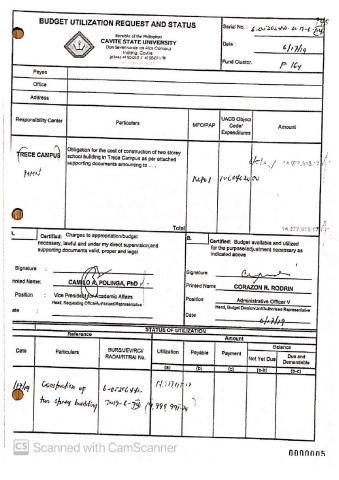 BUDGET UTILIZATION REQUEST AND STATUS
Republic of the Philippines
CAVITE STATE UNIVERSITY
Don Severino de las Alas Campus
Indang, Cavite
Serial No. :
Date : 6/17/19
Fund Cluster: P 164
Payee
Office
Address
Responsibility Center
Particulars
MFO/PAP
UACS Object Code/ Expenditures
Amount
TRECE CAMPUS
Obligation for the cost of construction of two storey
school Building in Trece Campus as per attached
supporting documents amounting to . . .
Total
Certified: Charges to appropriation/budget
necessary, lawful and under my direct supervision;and
supporting documents valid, proper and legal
Signature :
Printed Name: CAMILO A. POLINGA, PhD
Position : Vice President for Academic Affairs
Head, Requesting Office/Authorized Representative
B. Certified: Budget available and utilized
for the purpose/adjustment necessary as
indicated above
Signature
Printed Name CORAZON R. RODRIN
Position Administrative Officer V
Head, Budget Division/Unit/Authorized Representative
Date 6/17/19
STATUS OF UTILIZATION
Reference
Amount
Date
Particulars
BURS/JEV/RCI/ RADAI/RTRAI No.
Utilization
Payable
Payment
Balance
Not Yet Due
Due and Demandable
(a)
(b)
(c)
(a-b)
(b-c)
Construction of
two storey building
CS Scanned with CamScanner
0000005